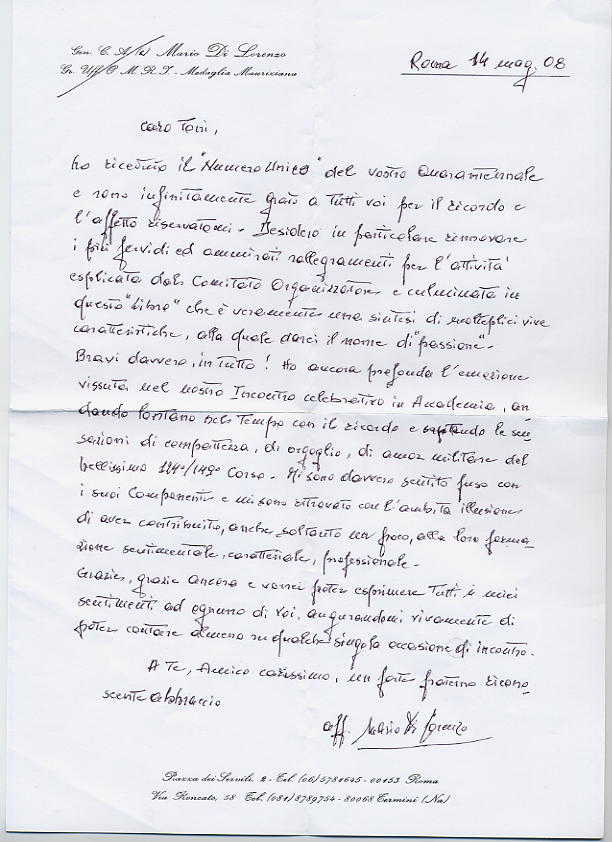 Gen. C. A. (a) Mario Di Lorenzo
Gr. Uff. O M. R. I. - Medaglia Mauriziana
Roma 14 mag. 08
Caro Toni,
ho ricevuto il "Numero Unico" del vostro Quarantennale
e sono infinitamente grato a tutti voi per il ricordo e
l'affetto riservatomi. Desidero in particolare rinnovare
i più fervidi ed ammirati rallegramenti per l'attività
esplicata dal Comitato Organizzatore e culminata in
questo "libro" che è veramente una sintesi di molteplici vive
caratteristiche, alla quale darei il nome di "passione".
Bravi davvero, in tutto! Ho ancora profonda l'emozione
vissuta nel nostro Incontro celebrativo in Accademia, an
dando lontano nel tempo con il ricordo e le sen
sazioni di compattezza, di orgoglio, di amor militare del
bellissimo 124°/149° Corso. Mi sono davvero sentito fuso con
i suoi Componenti e mi sono ritrovato con l'ambita illusione
di aver contribuito, anche soltanto un poco, alla loro forma_
zione sentimentale, caratteriale, professionale.
Grazie, grazie ancora e vorrei poter esprimere tutti i miei
sentimenti ad ognuno di voi, augurandomi vivamente di
poter contare almeno su qualche singola occasione di incontro.
A te, Amico carissimo, un forte fraterno ricono_
scente abbraccio
aff. Mario Di Lorenzo
Piazza dei Servili, 2 - Tel. (06) 5781645 - 00153 Roma
Via Roncato, 58 Tel. (081) 8789754 - 80068 Termini (Na)